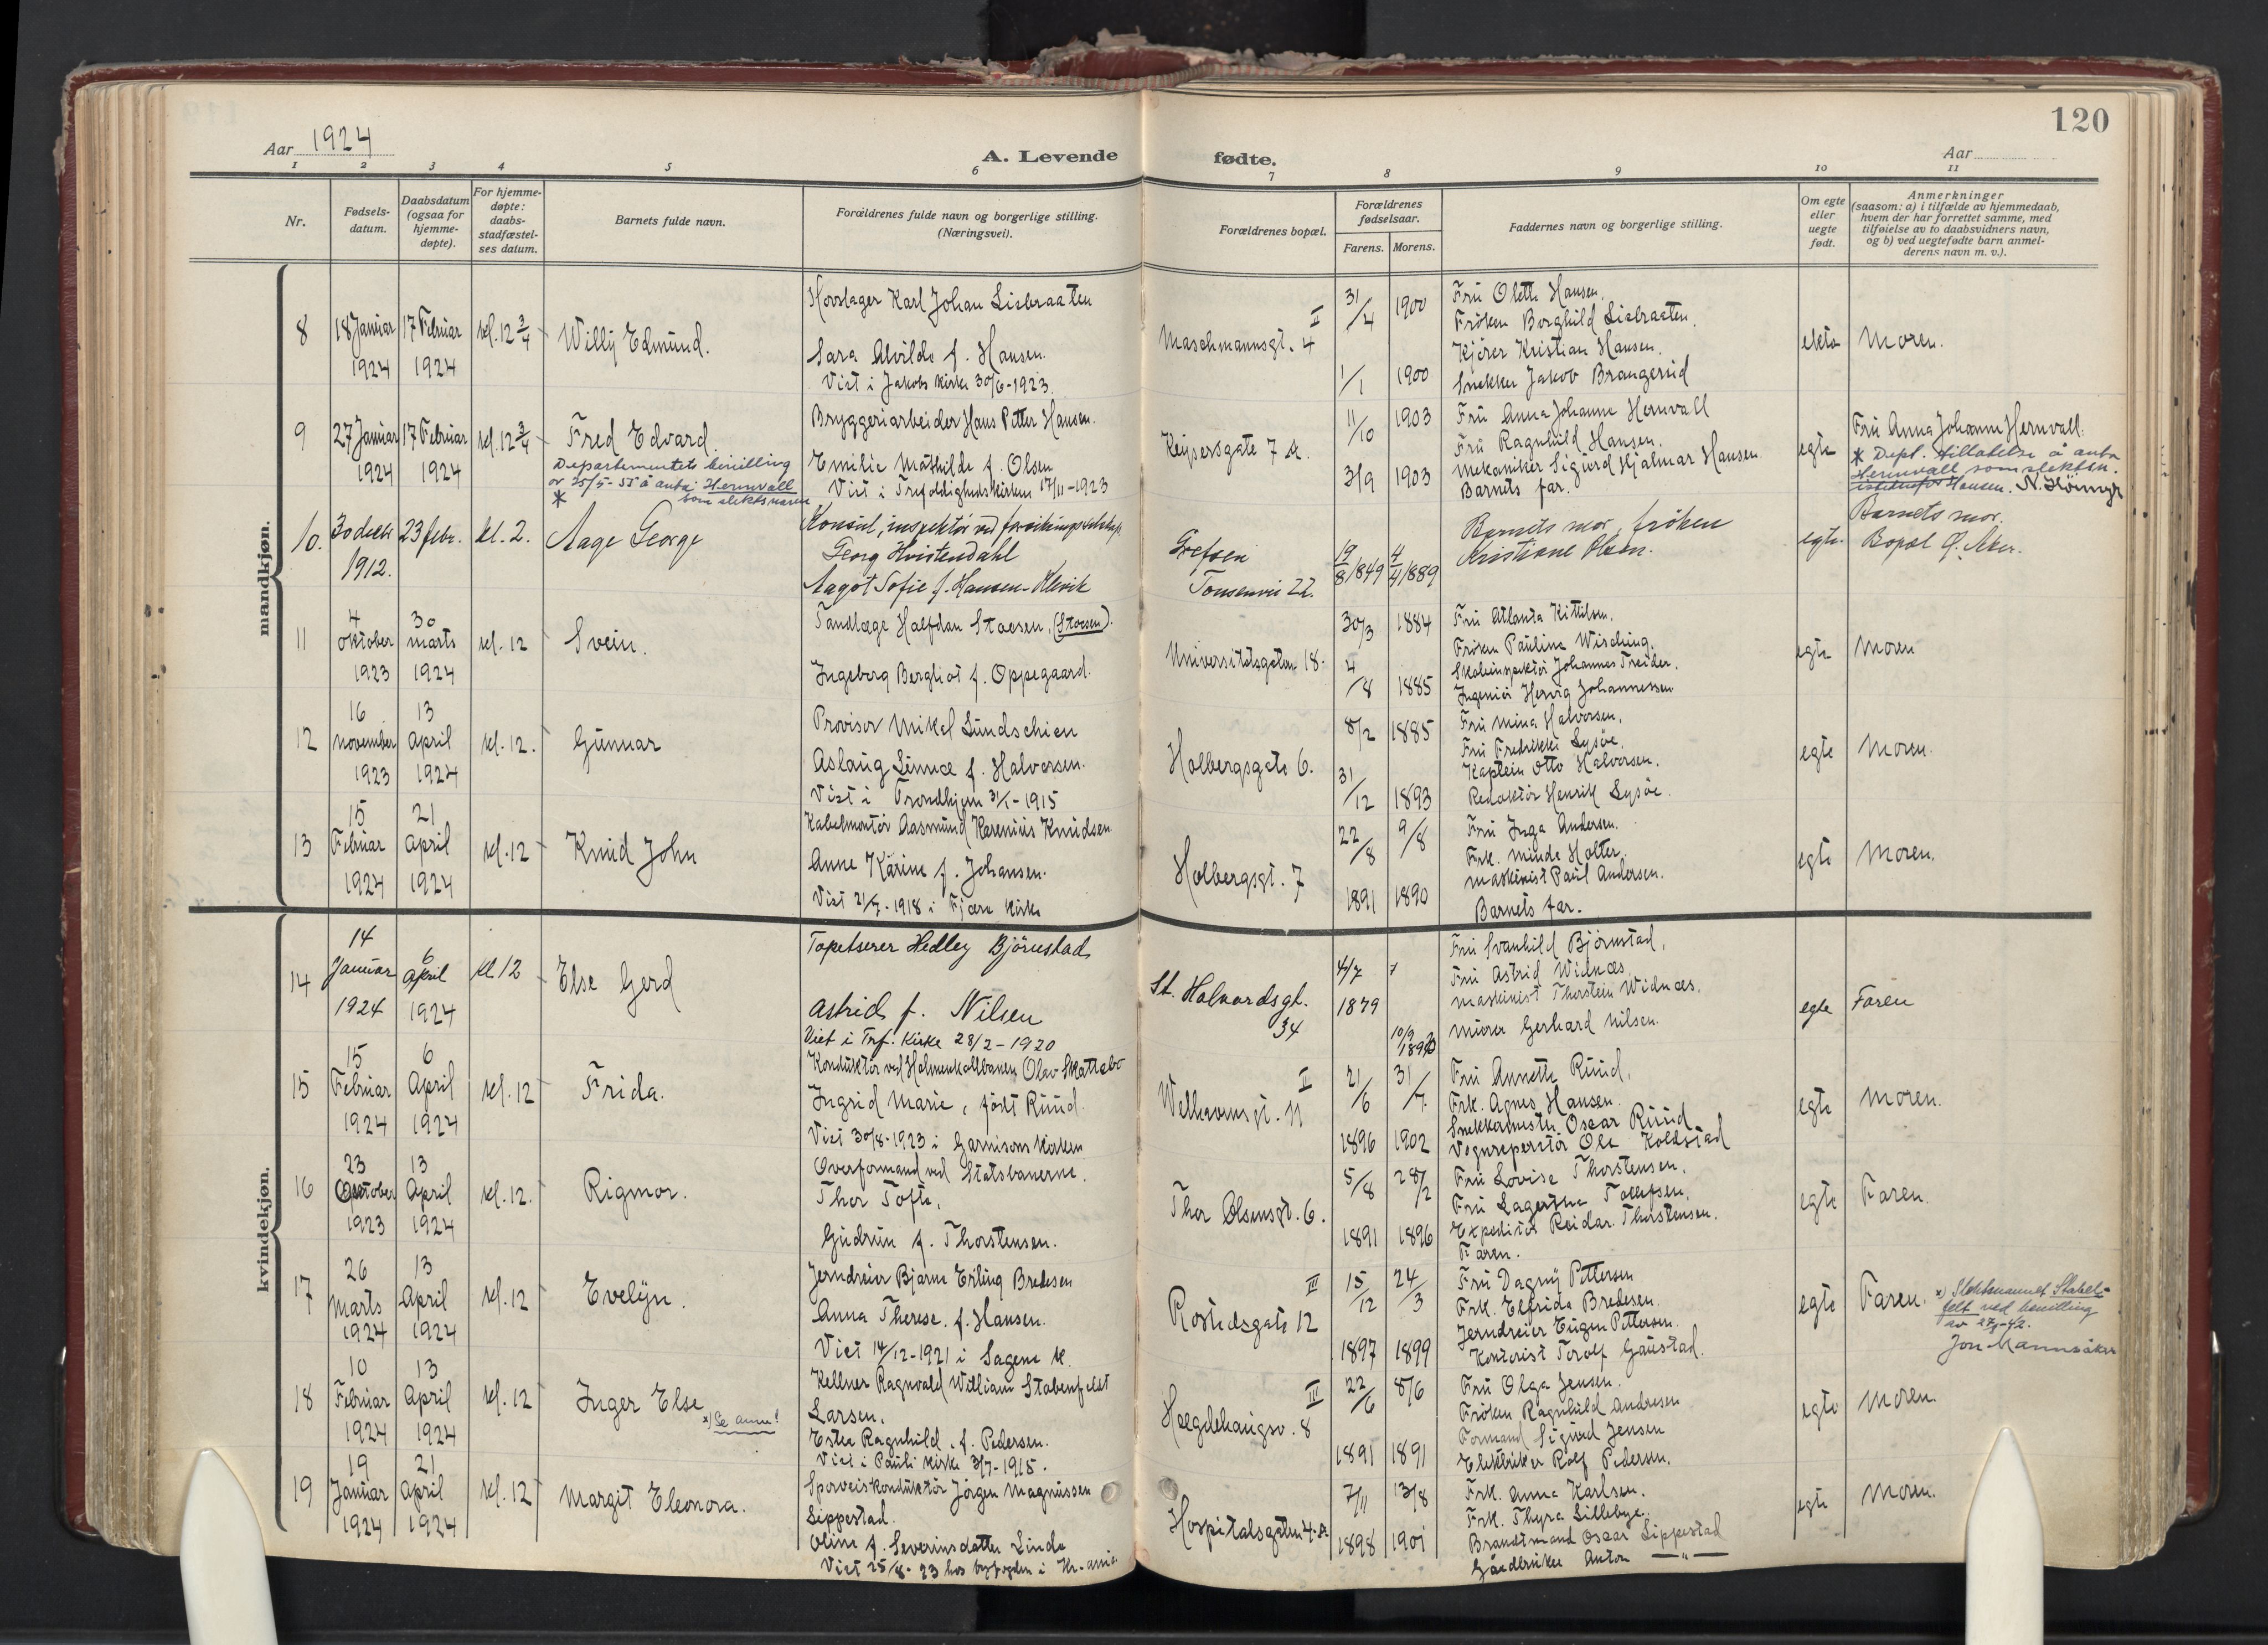 120
Aar 1924
A. Levende fødte.
Aar
1 2 3 4 5 6 7 8 9 10 11
Nr.
Fødsels-
datum.
Daabsdatum
(ogsaa for
hjemme-
døpte).
For hjemme-
døpte:
daabs-
stadfæstel-
ses datum.
Barnets fulde navn.
Forældrenes fulde navn og borgerlige stilling.
(Næringsvei).
Forældrenes bopæl.
Forældrenes
fødselsaar.
Farens. Morens.
Faddernes navn og borgerlige stilling.
Om egte
eller
uegte
født.
Anmerkninger
(saasom: a) i tilfælde av hjemmedaab,
hvem der har forrettet samme, med
tilføielse av to daabsvidners navn,
og b) ved uegtefødte barn anmel-
derens navn m. v.).
mandkjøn.
8
18 Januar
1924
17 Februar
1924
kl. 12 3/4
Willy Edmund.
Karl Johan Liebraaten
Sara Alvilde f. Hansen.
Viet i Jakobs kirke 30/6-1923.
Maschmannsgt. 4 II
31/4 1900
1/1 1900
Fru Olette Hansen.
Frøken Borghild Liebraaten.
Kjører Kristian Hansen.
Snekker Jakob Brangerud
ekte
Moren.
9
27 Januar
1924
17 Februar
1924
kl. 12 3/4
Fred Edvard.
Departementets bevilling
av 25/5-55 å anta Hernvall
* som slektsnavn
Bryggeriarbeider Hans Petter Hansen.
Emilie Mathilde f. Olsen
Viet i Trefoldighedskirken 17/11-1923
Keysersgate 7 A.
11/10 1903
3/9 1903
Fru Anna Johanne Hernvall
Fru Ragnhild Hansen.
Mekaniker Sigurd Hjalmar Hansen
Barnets far.
egte
Fru Anna Johanne Hernvall.
* Dept. tillatelse å anta
Hernvall som slektsn.
istedenfor Hansen.
10.
30 decbr.
1912.
23 febr.
kl. 2.
Aage George
Konsul, inspektør ved forsikringsselskap
Georg Hvistendahl
Aagot Sofie f. Hansen-Klevik
Grefsen
Tonsenvei 22.
19/8 1849
4/4 1889
Barnets mor, frøken
Kristiane Olsen.
egte.
Barnets mor.
Bopæl Ø. Aker.
11
4
oktober
1923
30
marts
1924
kl. 12
Svein.
Tandlæge Halfdan Stoesen. (Stoesen).
Ingeborg Bergliot f. Oppegaard.
Universitetsgaten 18.
30/3 1884
4/8 1885
Fru Atlanta Kittilsen.
Frøken Pauline Wisching.
Skoleinspektør Johannes Treider.
Ingeniør Hervig Johannessen
egte
Moren
12
16
november
1923
13
April
1924
kl. 12.
Gunnar
Provisor Mikal Lundschien
Aslaug Linnæ f. Halvorsen.
Viet i Trondhjem 31/1-1915
Holbergsgate 6.
8/2 1885
31/12 1893
Fru Mina Halvorsen.
Fru Fredrikke Lysøe.
Kaptein Otto Halvorsen.
Redaktør Henrik Lysøe.
egte
Moren.
13
15
Februar
1924
21
April
1924
kl. 12
Knud John
Kabelmontør Aasmund Karenius Knudsen
Anne Karine f. Johansen.
Viet 21/7-1918 i Fjære kirke
Holbergsgt. 7
22/8 9/8
1891 1890
Fru Inga Andersen.
Frk. Minde Holter.
Maskinist Paul Andersen.
Barnets far.
egte
Moren.
kvindekjøn.
14
14
Januar
1924
6
April
1924
kl 12
Else Gerd
Tapetserer Hedley Björnstad
Astrid f. Nilsen
Viet i Trf. Kirke 28/2-1920
St. Halvardsgt.
34
4/7
1879
10/9
Fru Svanhild Bjørnstad.
Fru Astrid Widnæs.
Maskinist Thorstein Widnæs.
Murer Gerhard Nilsen.
egte
Faren
15
15
Februar
1924
6
April
1924
kl. 12
Frida.
Konduktør ved Holmenkollbanen Olav Skattebo
Ingrid Marie, født Ruud.
Viet 30/8-1923 i Garnisons kirken
Welhavensgt. 11 II
21/6 31/7
1896 1902
Fru Annette Ruud.
Frk. Agnes Hansen.
Snekkermester Oscar Ruud
Vognreperatør Ole Koldstad
egte
Moren.
16
23
Oktober
1923
13
April
1924
kl. 12.
Rigmor.
Overformand ved Statsbanerne.
Thor Tofte.
Gudrun f. Thorstensen.
Thor Olsensgt. 6.
5/8 28/2
1891 1896
Fru Lovise Thorstensen.
Fru Lagertha Tollefsen.
Expeditør Reidar Thorstensen.
Faren.
egte
Faren.
17
26
Marts
1924
13
April
1924
kl. 12
Evelyn.
Jerndreier Bjarne Erling Bredesen
Anna Therese f. Hansen.
Viet 14/12-1921 i Sagene k.
Rostedsgate 12 III
15/12 24/3
1897 1899
Fru Dagny Pettersen
Frk. Elfrida Bredesen.
Jerndreier Eugen Pettersen.
Kontorist Torolf Gaustad.
egte
Faren.
x) Slektsnavnet Stabel-
felt ved bevilling
av 27/3-42.
Jon Mannsåker
18
10
Februar
1924
13
April
1924
kl. 12
Inger Else
x) Se anm!
Kellner Ragnvald William Stabenfeldt
Larsen.
Ester Ragnhild f. Pedersen.
Viet i Pauli kirke 3/7-1915.
Hægdehaugsv. 8 III
22/6 8/6
1891 1891
Fru Olga Jensen.
Frøken Ragnhild Andresen
Formand Sigurd Jensen
Elektriker Rolf Pedersen.
egte
Moren.
19
19
Januar
1924
21
April
1924
kl. 12
Margit Eleonora.
Sporveiskonduktør Jørgen Magnussen
Lippestad.
Oline f. Severinsdatter Linde
Viet 25/8-23 hos byfogden i Kr.ania
Hospitalsgaten 4 A
7/11 13/8
1898 1901
Frk. Anna Karlsen.
Frk. Thyra Lillebye.
Brandtmand Oscar Lippestad
Gårdbruker Anton —"—
egte
Moren.